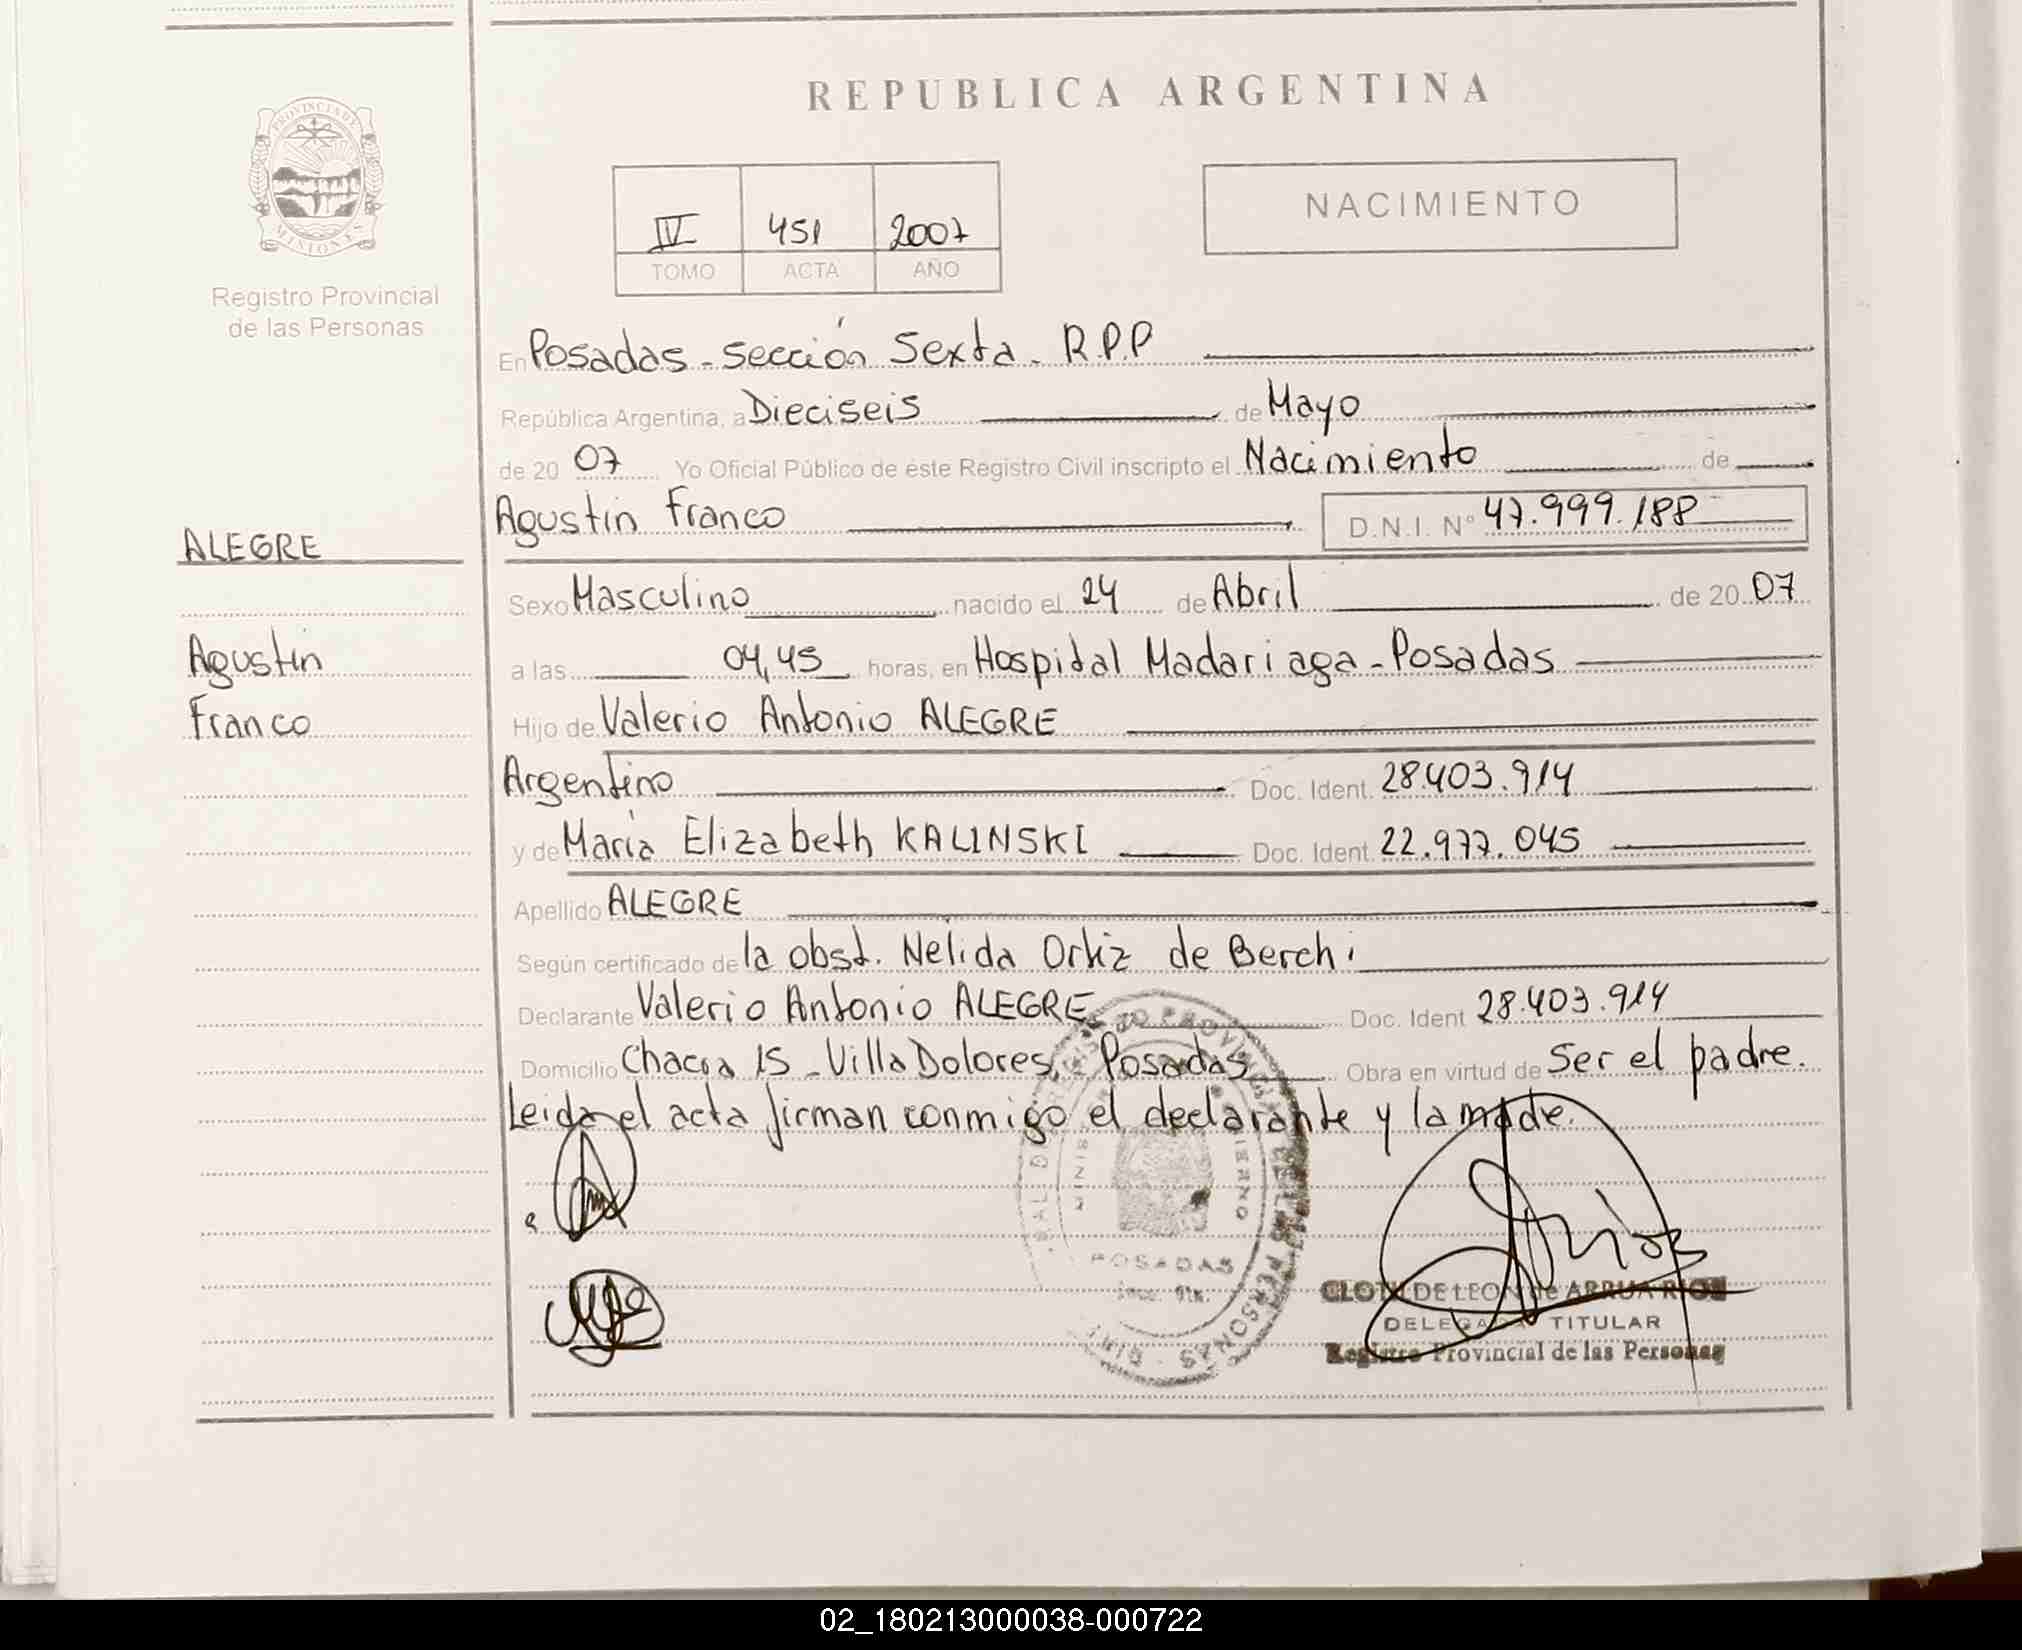 REPUBLICA ARGENTINA
PROVINCIA DE
MISIONES
Registro Provincial
de las Personas
IV 451 2007
TOMO ACTA AÑO
NACIMIENTO
En Posadas - sección Sexta - R.P.P
República Argentina, a Dieciseis de Mayo
de 20 07 Yo Oficial Público de éste Registro Civil inscripto el Nacimiento de
Agustin Franco D.N.I. Nº 47.999.188
ALEGRE
Sexo Masculino nacido el 24 de Abril de 20 07
Agustin
a las 04,45 horas, en Hospital Madariaga - Posadas
Franco
Hijo de Valerio Antonio ALEGRE
Argentino Doc. Ident. 28.403.914
y de María Elizabeth KALINSKI Doc. Ident. 22.977.045
Apellido ALEGRE
Según certificado de la obst. Nelida Ortiz de Berchi
Declarante Valerio Antonio ALEGRE Doc. Ident 28.403.914
Domicilio Chacra 15 - Villa Dolores, - Posadas Obra en virtud de Ser el padre.
Leida el acta firman conmigo el declarante y la madre.
POSADAS
DELEGADA TITULAR
Registro Provincial de las Personas
02_180213000038-000722